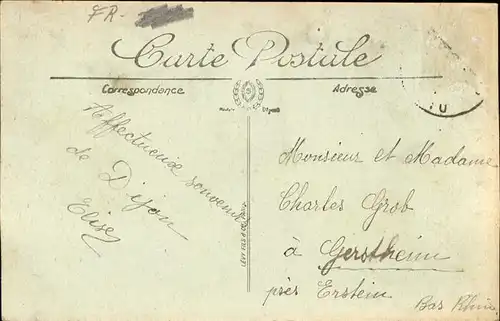 FR-
Carte Postale
Correspondance
Adresse
Affectueux souvenir
de Dijon
Elise
Monsieur et Madame
Charles Grob
à Gerstheim
près Erstein
Bas Rhin